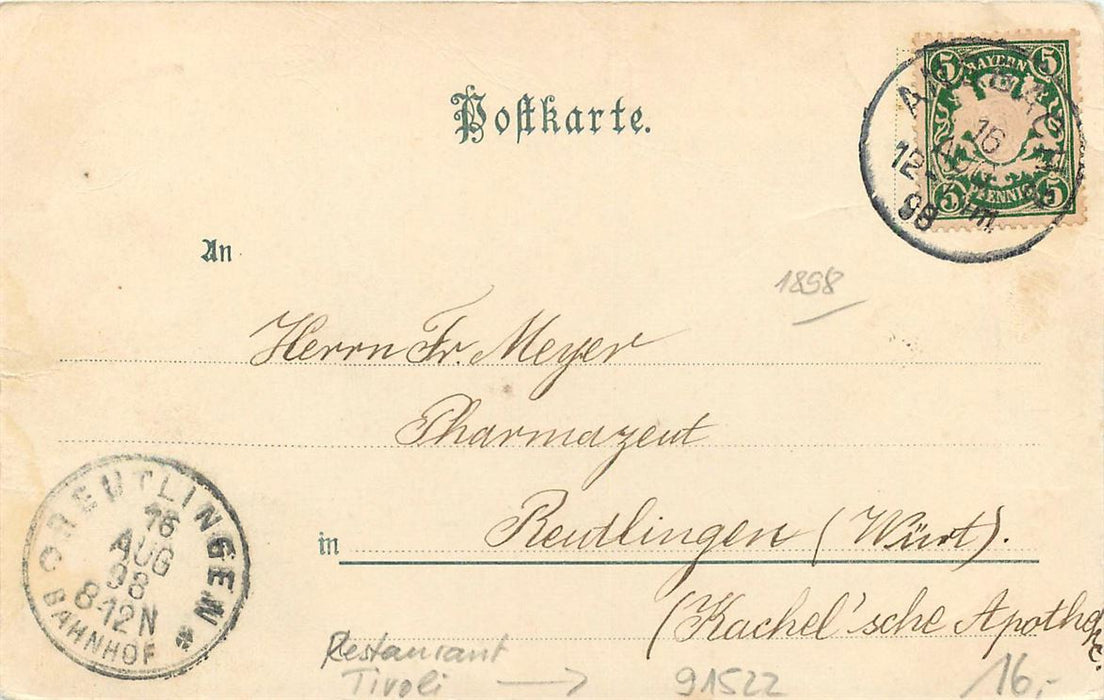 Postkarte.
5 BAYERN 5
5 PFENNIG 5
16
AUG
12-1 Nm.
98
An
1898
Herrn Fr. Meyer
Pharmazeut
in Reutlingen (Würt).
(Kachel'sche Apotheke.
REUTLINGEN
16
AUG
98
8-12N
BAHNHOF
Restaurant
Tivoli → 91522 16.-